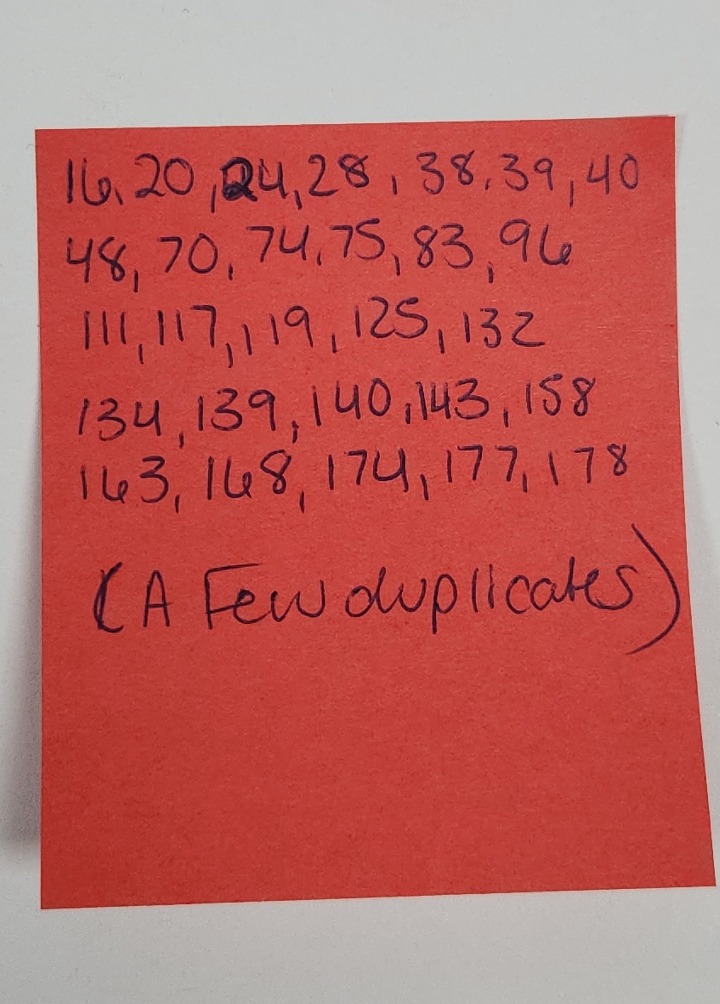 16, 20, 24, 28, 38, 39, 40
48, 70, 74, 75, 83, 96
111, 117, 119, 125, 132
134, 139, 140, 143, 158
163, 168, 174, 177, 178
(A Few duplicates)